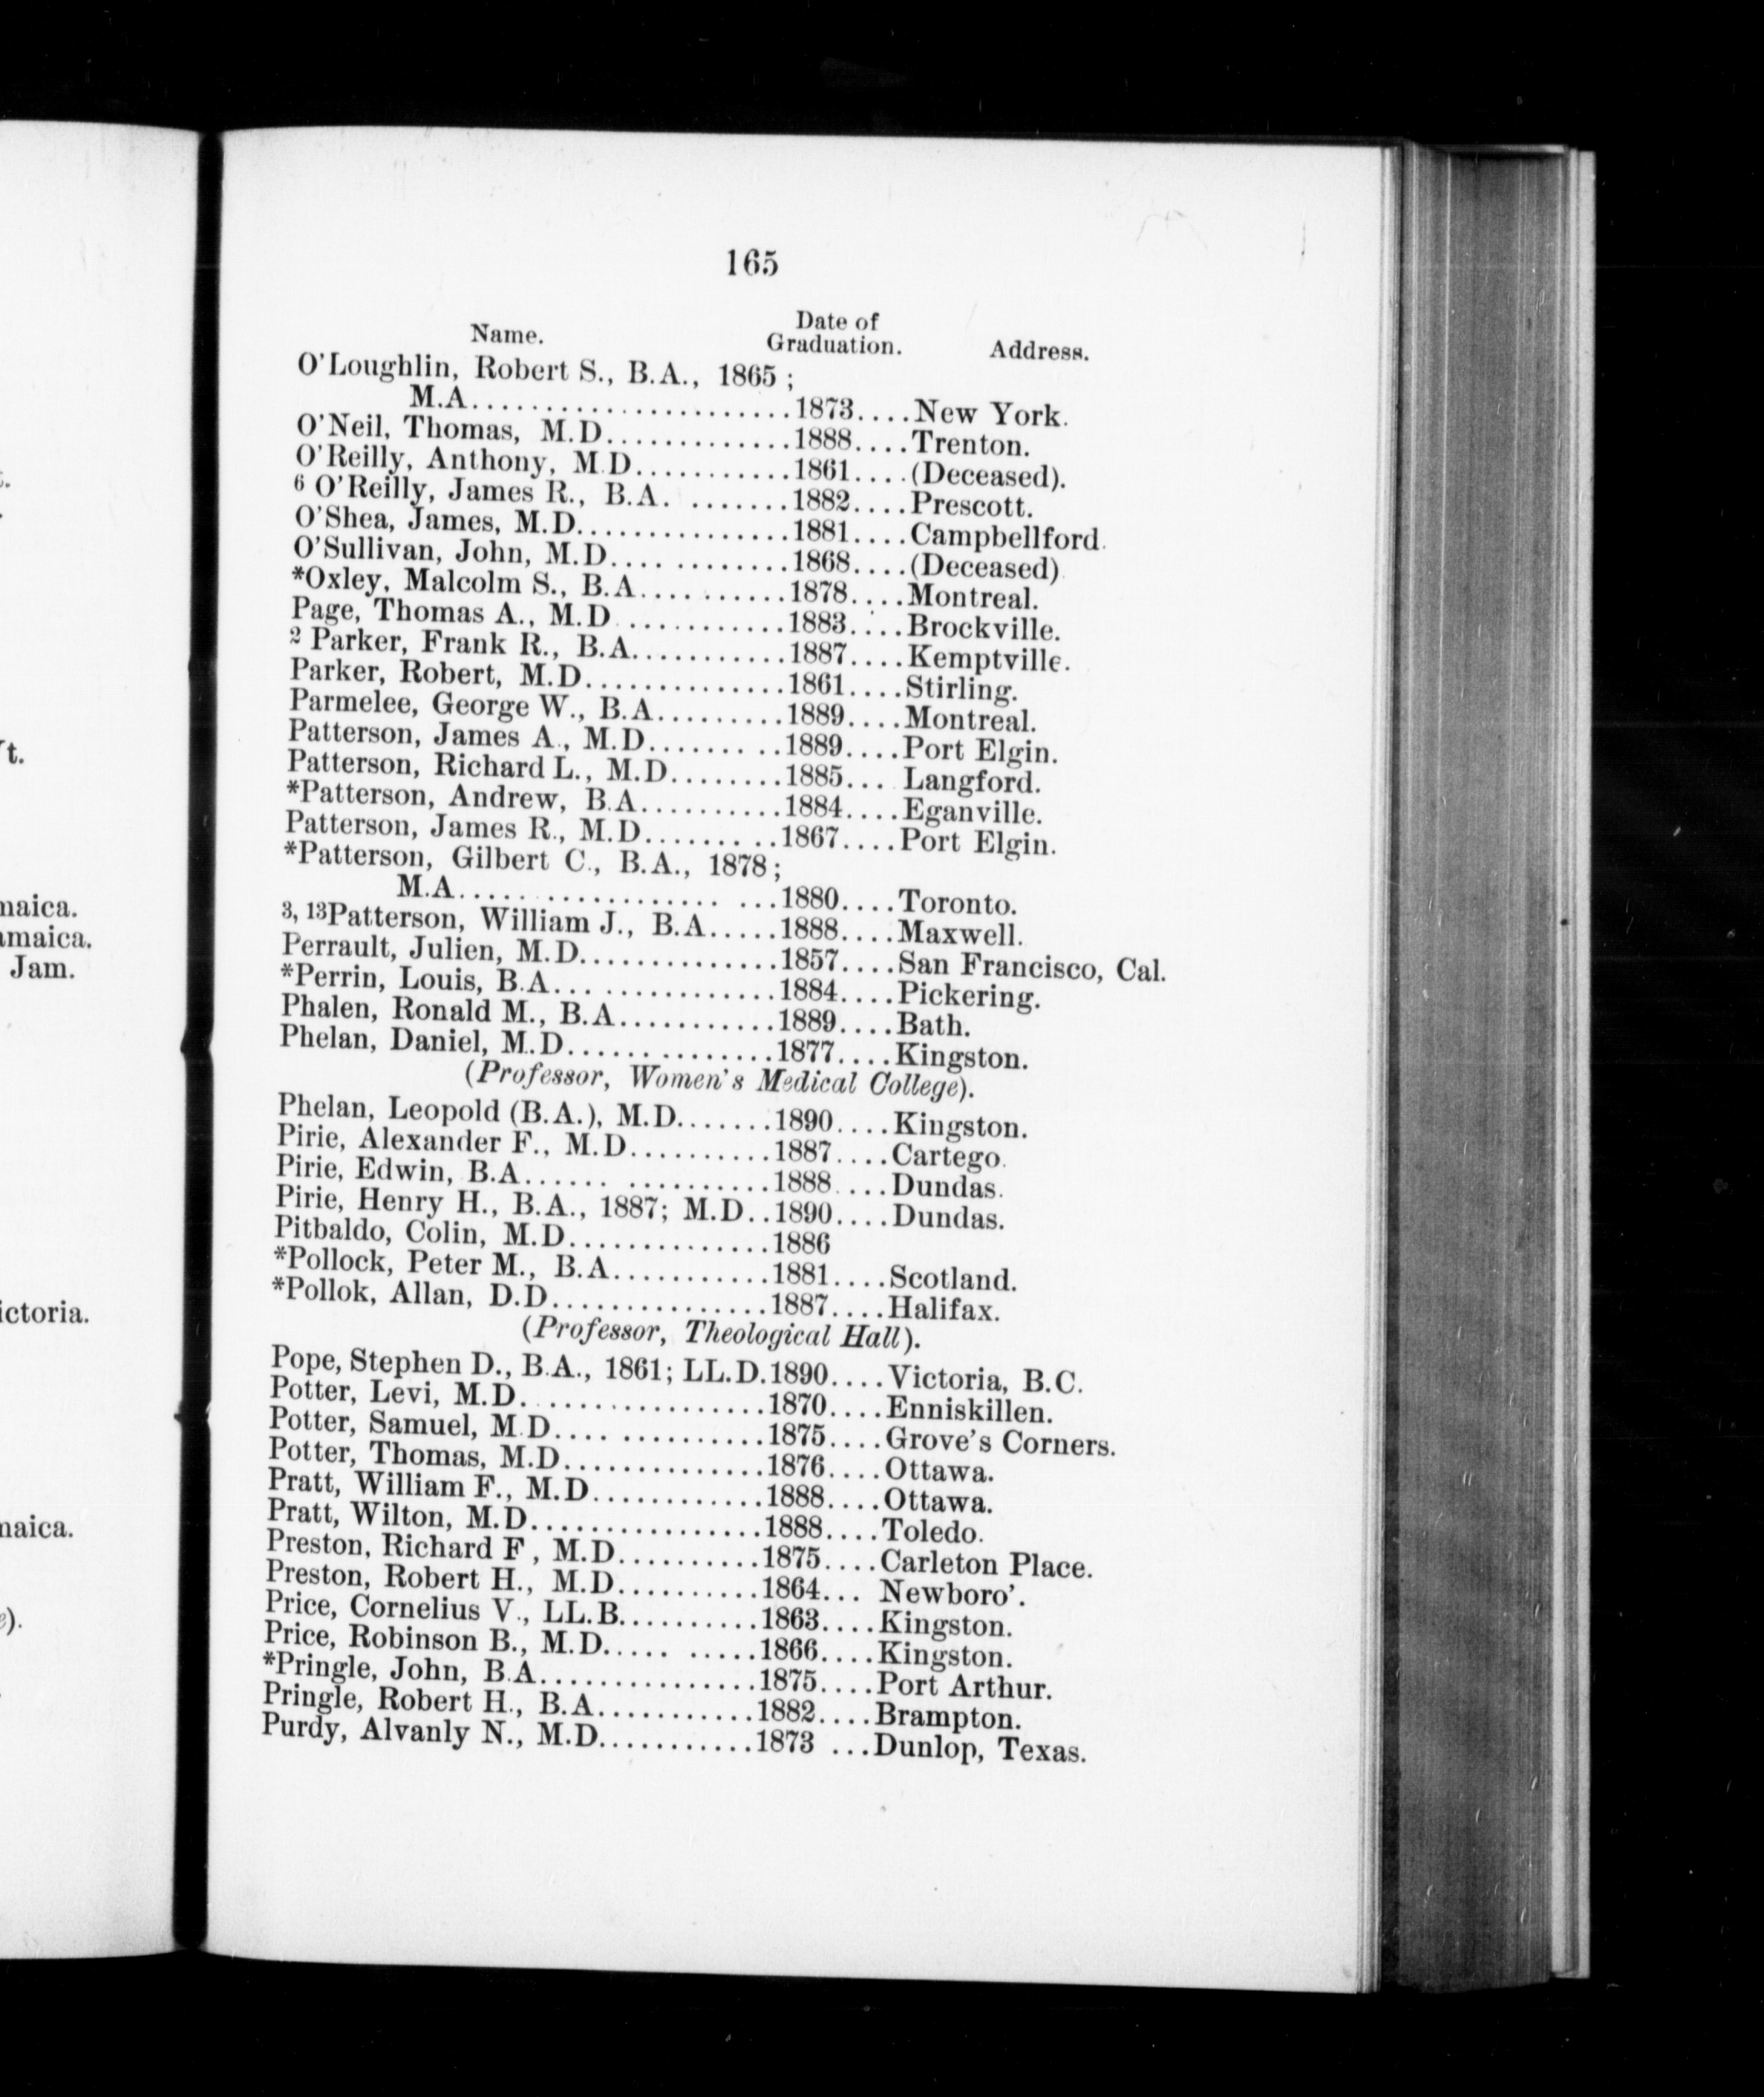 165
Name. Date of Graduation. Address.
O'Loughlin, Robert S., B.A., 1865 ;
M.A......................1873....New York.
O'Neil, Thomas, M.D.............1888....Trenton.
O'Reilly, Anthony, M.D...........1861....(Deceased).
6 O'Reilly, James R., B.A. .......1882....Prescott.
O'Shea, James, M.D...............1881....Campbellford.
O'Sullivan, John, M.D............1868....(Deceased)
*Oxley, Malcolm S., B.A..........1878....Montreal.
Page, Thomas A., M.D ............1883....Brockville.
2 Parker, Frank R., B.A...........1887....Kemptville.
Parker, Robert, M.D..............1861....Stirling.
Parmelee, George W., B.A.........1889....Montreal.
Patterson, James A., M.D.........1889....Port Elgin.
Patterson, Richard L., M.D........1885... Langford.
*Patterson, Andrew, B.A..........1884....Eganville.
Patterson, James R., M.D.........1867....Port Elgin.
*Patterson, Gilbert C., B.A., 1878;
M.A.................. ...1880....Toronto.
3, 13Patterson, William J., B.A.....1888....Maxwell.
Perrault, Julien, M.D..............1857....San Francisco, Cal.
*Perrin, Louis, B.A...............1884....Pickering.
Phalen, Ronald M., B.A...........1889....Bath.
Phelan, Daniel, M.D..............1877....Kingston.
(Professor, Women's Medical College).
Phelan, Leopold (B.A.), M.D.......1890....Kingston.
Pirie, Alexander F., M.D..........1887....Cartego.
Pirie, Edwin, B.A...... ..........1888....Dundas.
Pirie, Henry H., B.A., 1887; M.D..1890....Dundas.
Pitbaldo, Colin, M.D..............1886
*Pollock, Peter M., B.A...........1881....Scotland.
*Pollok, Allan, D.D...............1887....Halifax.
(Professor, Theological Hall).
Pope, Stephen D., B.A., 1861; LL.D.1890....Victoria, B.C.
Potter, Levi, M.D.................1870....Enniskillen.
Potter, Samuel, M.D.... ..........1875....Grove's Corners.
Potter, Thomas, M.D..............1876....Ottawa.
Pratt, William F., M.D............1888....Ottawa.
Pratt, Wilton, M.D................1888....Toledo.
Preston, Richard F , M.D..........1875....Carleton Place.
Preston, Robert H., M.D..........1864... Newboro'.
Price, Cornelius V., LL.B..........1863....Kingston.
Price, Robinson B., M.D..... .....1866....Kingston.
*Pringle, John, B.A...............1875....Port Arthur.
Pringle, Robert H., B.A...........1882....Brampton.
Purdy, Alvanly N., M.D...........1873 ...Dunlop, Texas.